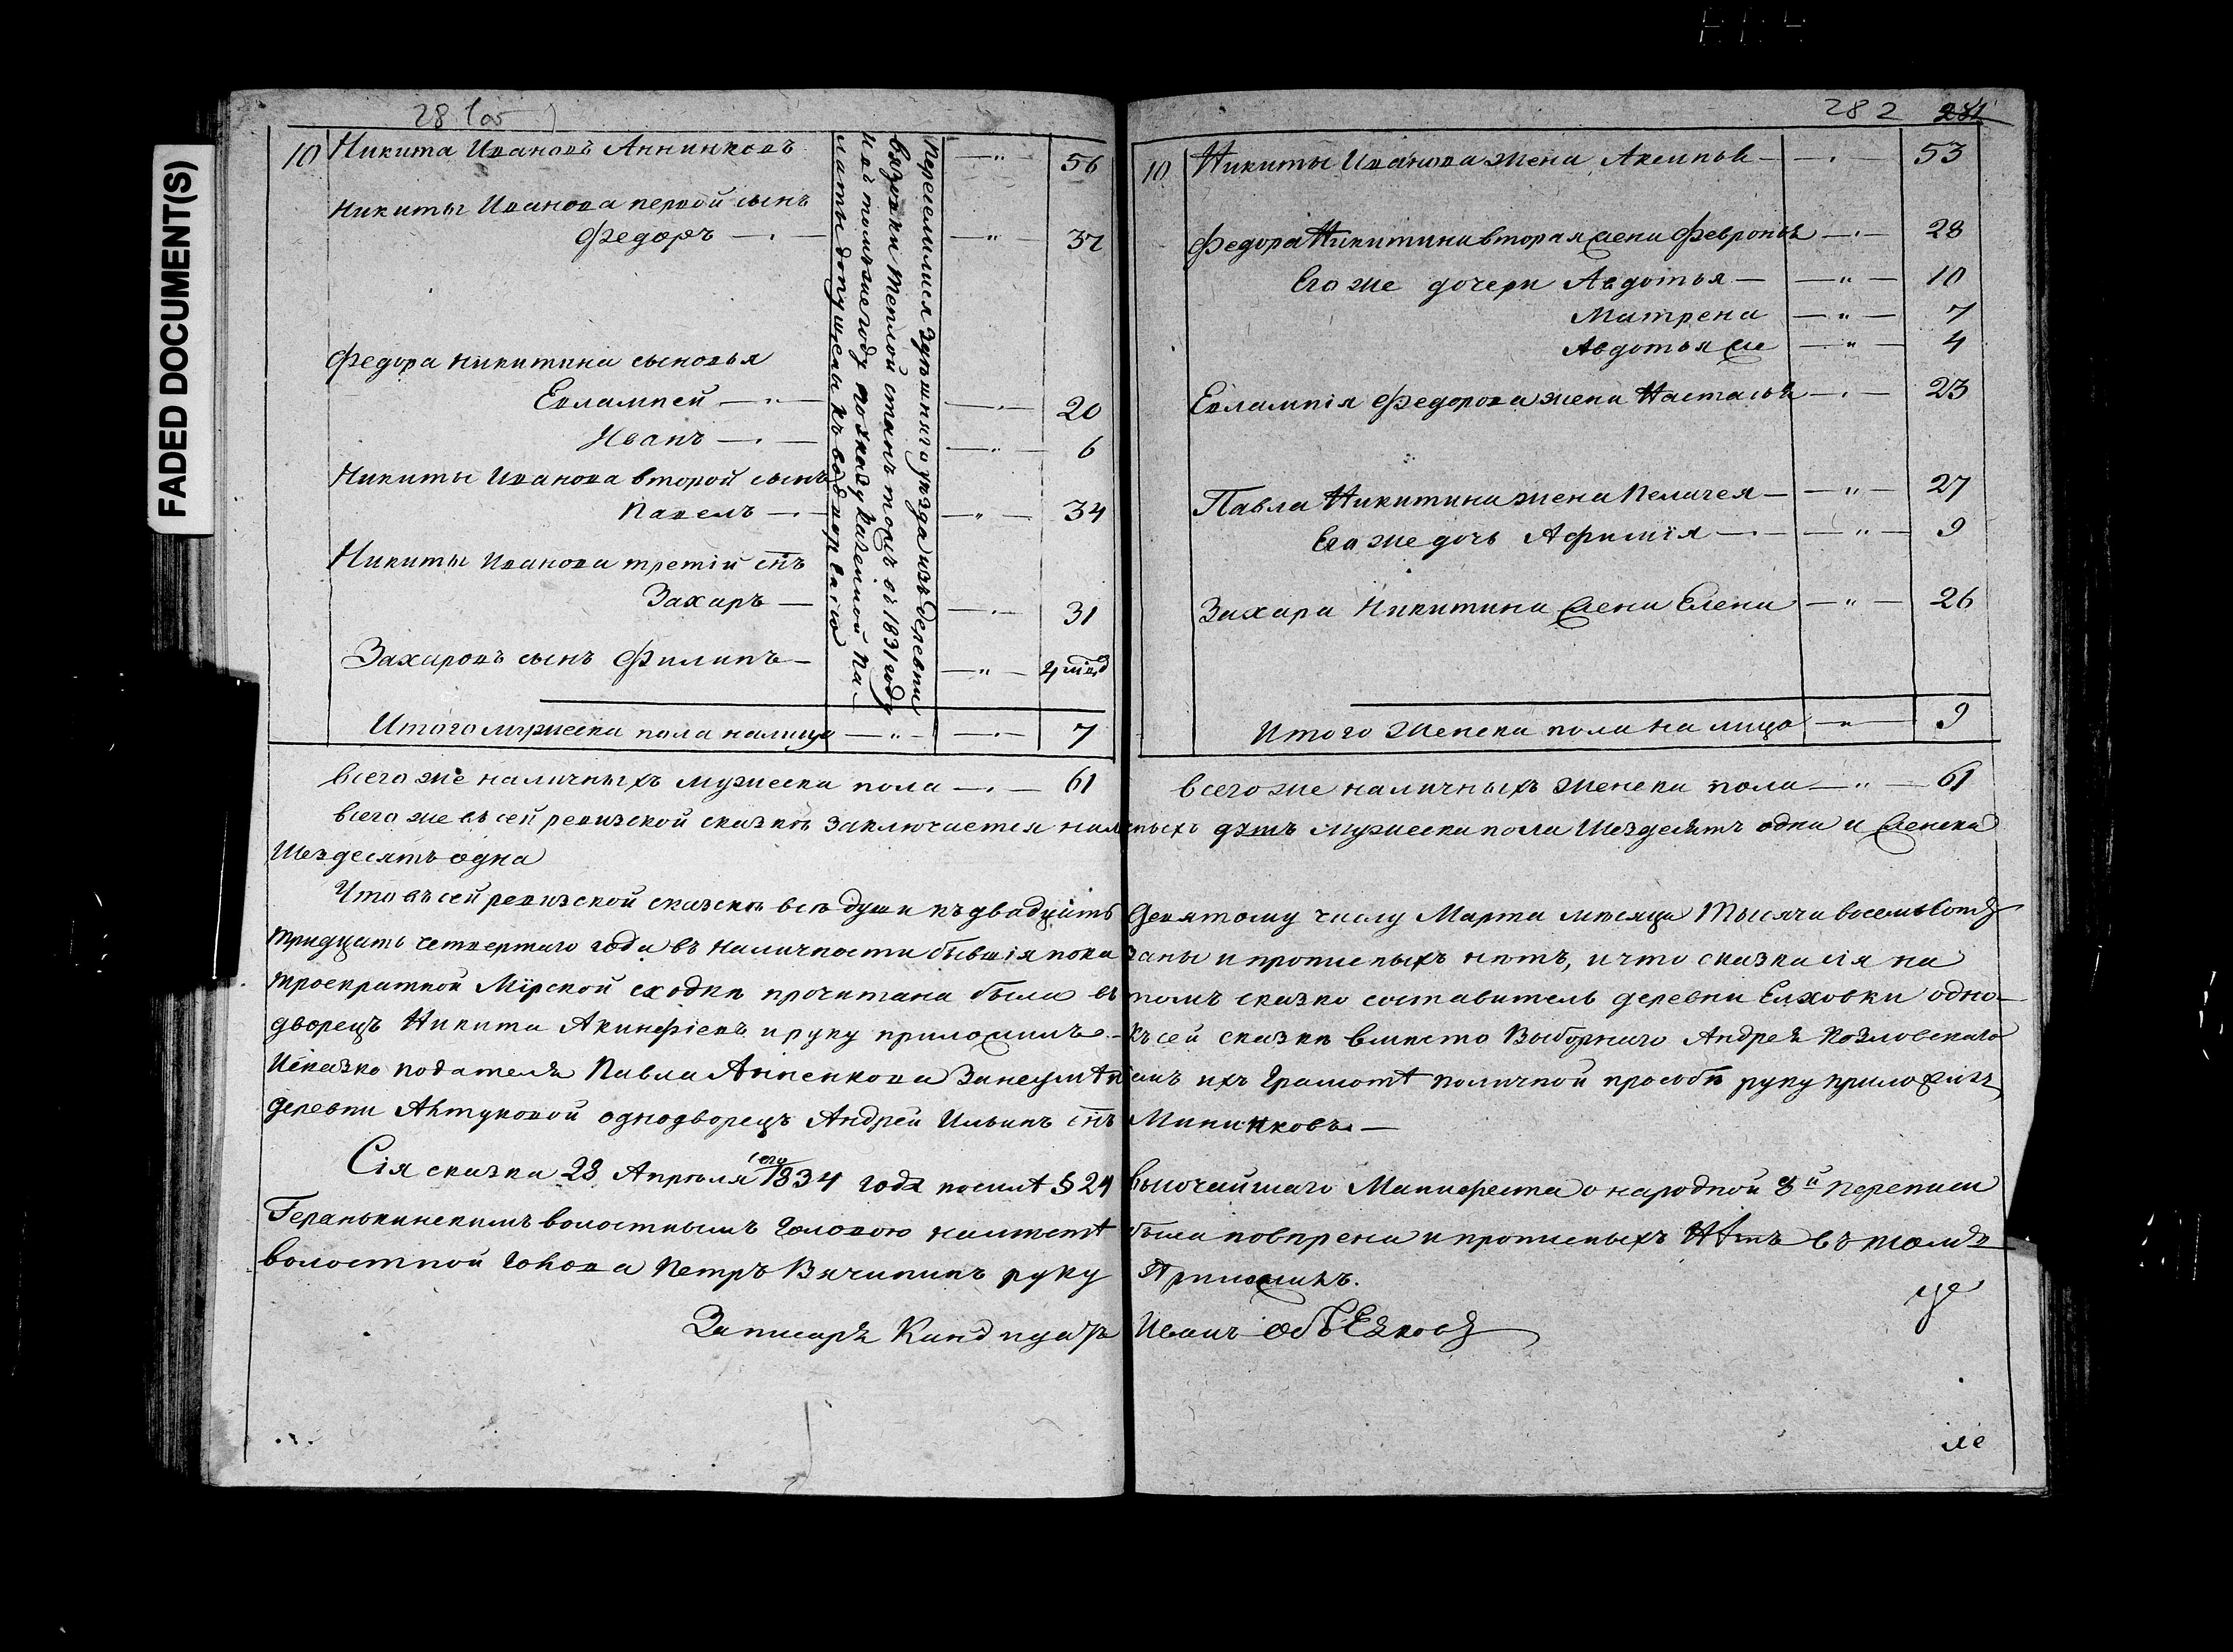 FADED DOCUMENT(S)
28 1об
10 Никита Ивановъ Аннинковъ 56
Никиты Иванова первой сынъ
Федоръ 37
Федора Никитина сыновья
Евлампей 20
Иванъ 6
Никиты Иванова второй сынъ
Павелъ 34
Никиты Иванова третiй сiнъ
Захаръ 31
Захаровъ сынъ Филипъ 4
Переселились здешняго уезда изъ деревни
Теплой станъ тожъ въ 1831 году
Итого мужеска пола налицо 7
282 281
10 Никиты Иванова жена Аксинья 53
Федора Никитина вторая жена Февронья 28
Его же дочери Авдотья 10
Матрена 7
Авдотья же 4
Евлампiя Федорова жена Настасья 23
Павла Никитина жена Пелагея 27
Его же дочь Афимiя 9
Захара Никитина жена Елена 26
Итого женска пола на лицо 9
Всего же наличныхъ мужеска пола 61
Всего же наличныхъ женска пола 61
Всего же въ сей ревизской сказкѣ заключается наличныхъ душъ мужеска пола шездесятъ одна и женска
Шездесятъ одна
Что въ сей ревизской сказскѣ всѣ души къ двадцать Девятому числу Марта мѣсяца Тысяча восемьсотъ
тридцать четвертаго года въ наличности бывшiя показаны и прописныхъ нѣтъ, и что сказка сiя на
троекратной Мiрской сходкѣ прочитана была въ томъ сказко составитель деревни Елховки одно-
дворецъ Никита Акинфiевъ и руку приложилъ. - Къ сей сказкѣ вмѣсто Выборнаго Андрея Козловскаго
И сказко подателя Павла Анненкова За неумѣнiемъ ихъ Грамотѣ по личной прозбѣ руку приложилъ
деревни Актуковой однодворецъ Андрей Ильинъ сiнъ Мининковъ. -
Сiя сказка 28 Апрѣля сего 1834 года по силѣ § 24 Высочайшаго Манифеста о народной 8й переписи
Геранькинскимъ волостнымъ Головою на мѣстѣ была повѣрена и прописныхъ нѣтъ въ томъ
волостной Голова Петръ Вячинъ руку Приложилъ.
За писаря Кандидатъ Иванъ